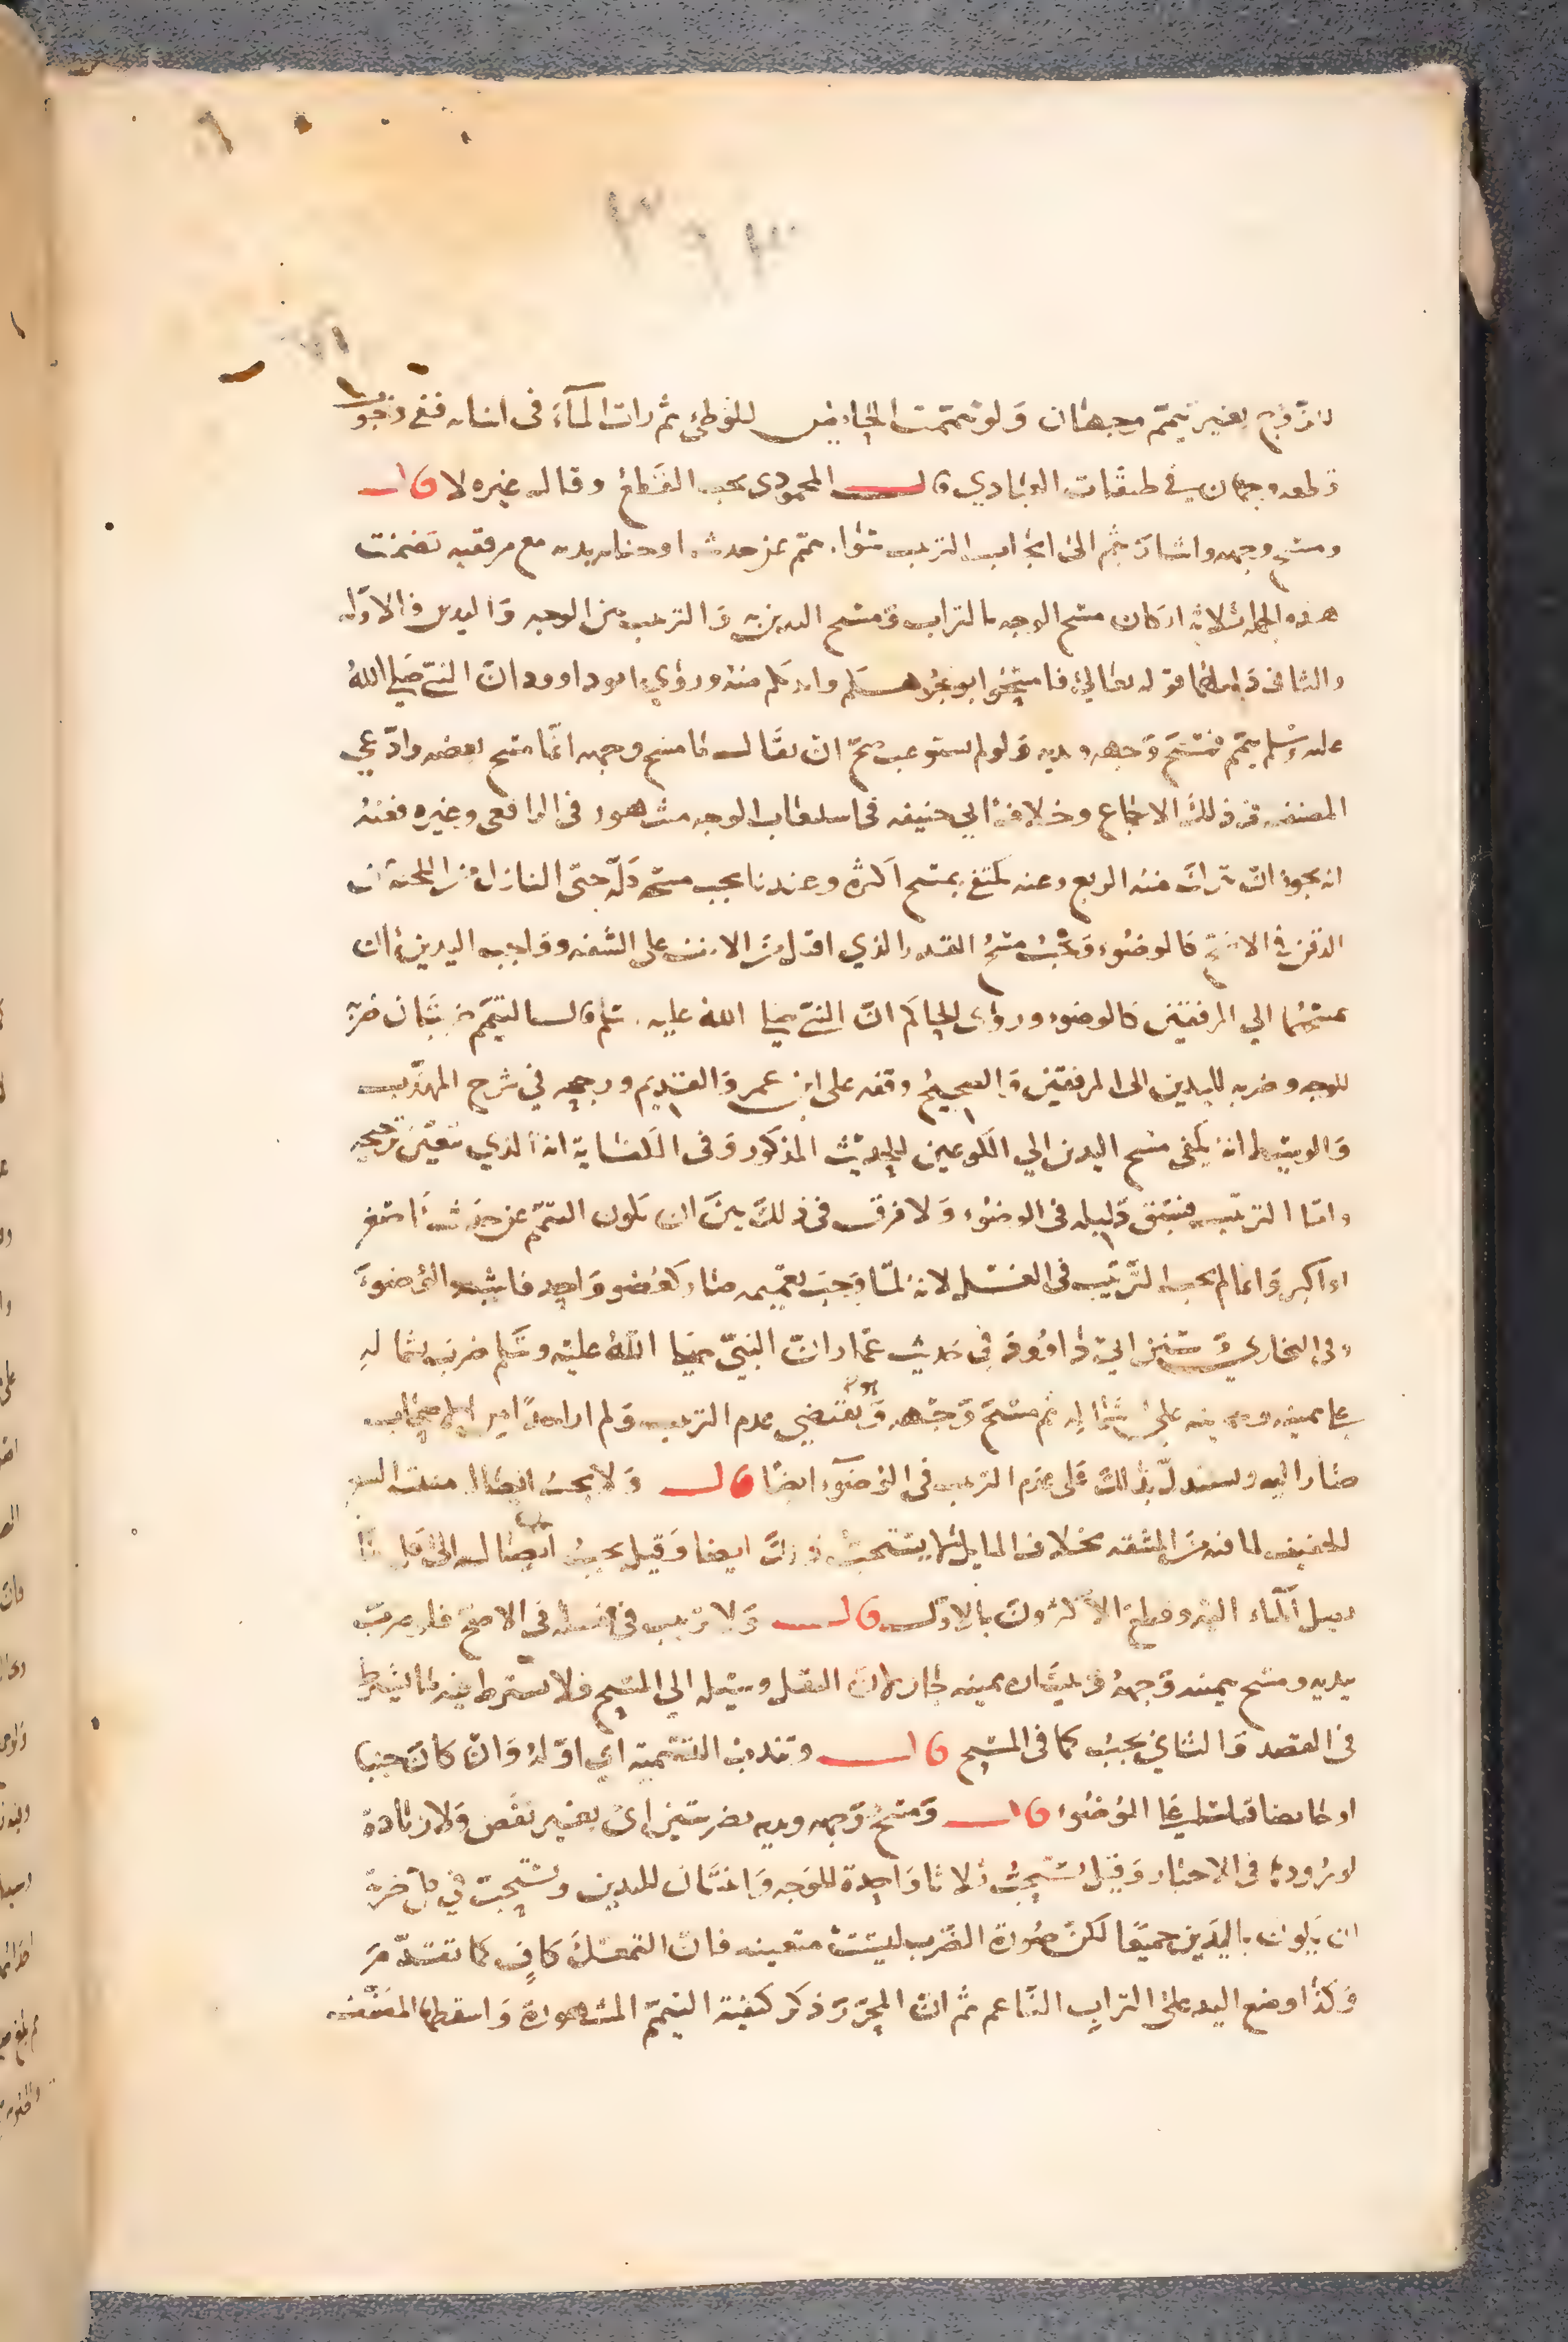 بغير تيمم وجهان ولو تيممت الحايض للوطئ ثم رات الماء في اثنايه ففي وجوب
قطعه وجهان في طبقات العبادي قال المحمودي يجب القطع وقال غيره لا قال
ومسح وجهه واشار بثم الى ايجاب الترتيب سوا تيمم عن حدث او جنابه يديه مع مرفقيه تضمنت
هذه الجملة ثلاثة اركان مسح الوجه بالتراب ومسح اليدين والترتيب بين الوجه واليدين فالاول
والثاني دليلهما قوله تعالى فامسحوا بوجوهكم وايديكم منه وروى ابو داوود ان النبي صلى الله
عليه وسلم تيمم فمسح وجهه ويديه ولو لم يستوعب صح ان يقال ما مسح وجهه انما مسح بعضه وادعى
المصنف في ذلك الاجماع وخلاف ابي حنيفه في استيعاب الوجه مشهور في الرافعي وغيره فعنه
انه يجوز ان يترك منه الربع وعنه يكتفي بمسح اكثره وعندنا يجب مسح كله حتى النازل من اللحية عن
الذقن في الاصح كالوضوء ويجب مسح القدر الذي اقبل من الانف على الشفه وواجب اليدين ان
يمسحهما الى المرفقين كالوضوء وروى الحاكم ان النبي صلى الله عليه وسلم قال التيمم ضربتان ضربة
للوجه وضربه لليدين الى المرفقين والصحيح وقفه على ابن عمر والقديم ورجحه في شرح المهذب
والوسيط انه يكفي مسح اليدين الى الكوعين للحديث المذكور وفي الكفاية انه الذي يتعين ترجيحه
واما الترتيب فسبق دليله في الوضوء ولا فرق في ذلك بين ان يكون التيمم عن حدث اصغر
او اكبر وانما لم يجب الترتيب في الغسل لانه لما وجب تعميمه صار كعضو واحد فاشبه الوضوء
وفي البخاري وسنن ابي داوود في حديث عمار ان النبي صلى الله عليه وسلم ضرب بشماله
على يمينه وبيمينه على شماله ثم مسح وجهه ويقتضي عدم الترتيب ولم ار احدا من الاصحاب
صار اليه ويستدل بذلك على عدم الترتيب في الوضوء ايضا قال ولا يجب ايصاله منبت الشعر
الخفيف لما فيه من المشقه بخلاف الماء بل لا يستحب ذلك ايضا وقيل يجب ايصاله الى
الماء اليه وقطع الاكثرون بالاول قال ولا ترتيب في نقله في الاصح فلو ضرب
بيديه ومسح بيمينه وجهه وبيساره يمينه جاز لان النقل وسيله الى المسح فلا يشترط فيه ما يشترط
في القصد والثاني يجب كما في المسح قال وتندب التسمية اي اوله وان كان جنبا
او حايضا قياسا على الوضوء قال ومسح وجهه ويديه بضربتين اي بغير نقص ولا زيادة
لوروده في الاخبار وقيل يستحب ثلاثا واحدة للوجه واثنتان لليدين ويستحب في كل ضربة
ان يكون باليدين جميعا لكن صورة الضرب ليست متعينه فان التمعك كاف كما تقدم
وكذا وضع اليد على التراب الناعم ثم ان المحرر ذكر كيفية التيمم المشهورة واسقطها المصنف